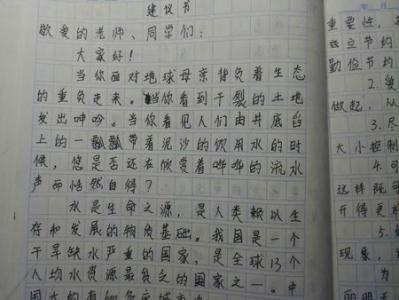 建议书
敬爱的老师、同学们：
大家好！
当你面对地球母亲背负着生态
的重负走来。当你看到干裂的土地
发出呻吟。当你看见人们由井底舀
上的一瓢瓢带着泥沙的饮用水的时
候，您是否还在欣赏着哗哗的流水
声而怡然自得？
水是生命之源，是人类赖以生
存和发展的物质基础。我国是一个
干旱缺水严重的国家，是全球13个
人均水资源最贫乏的国家之一。中
重要性，
立节约
勤俭节约
2.
做起，从
3.尽
大小控制
4.可
这样既可
开得更
5.
现象，
为